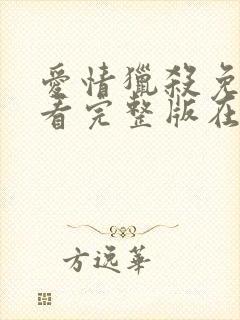 愛情獵殺免
看完整版在
方逸華